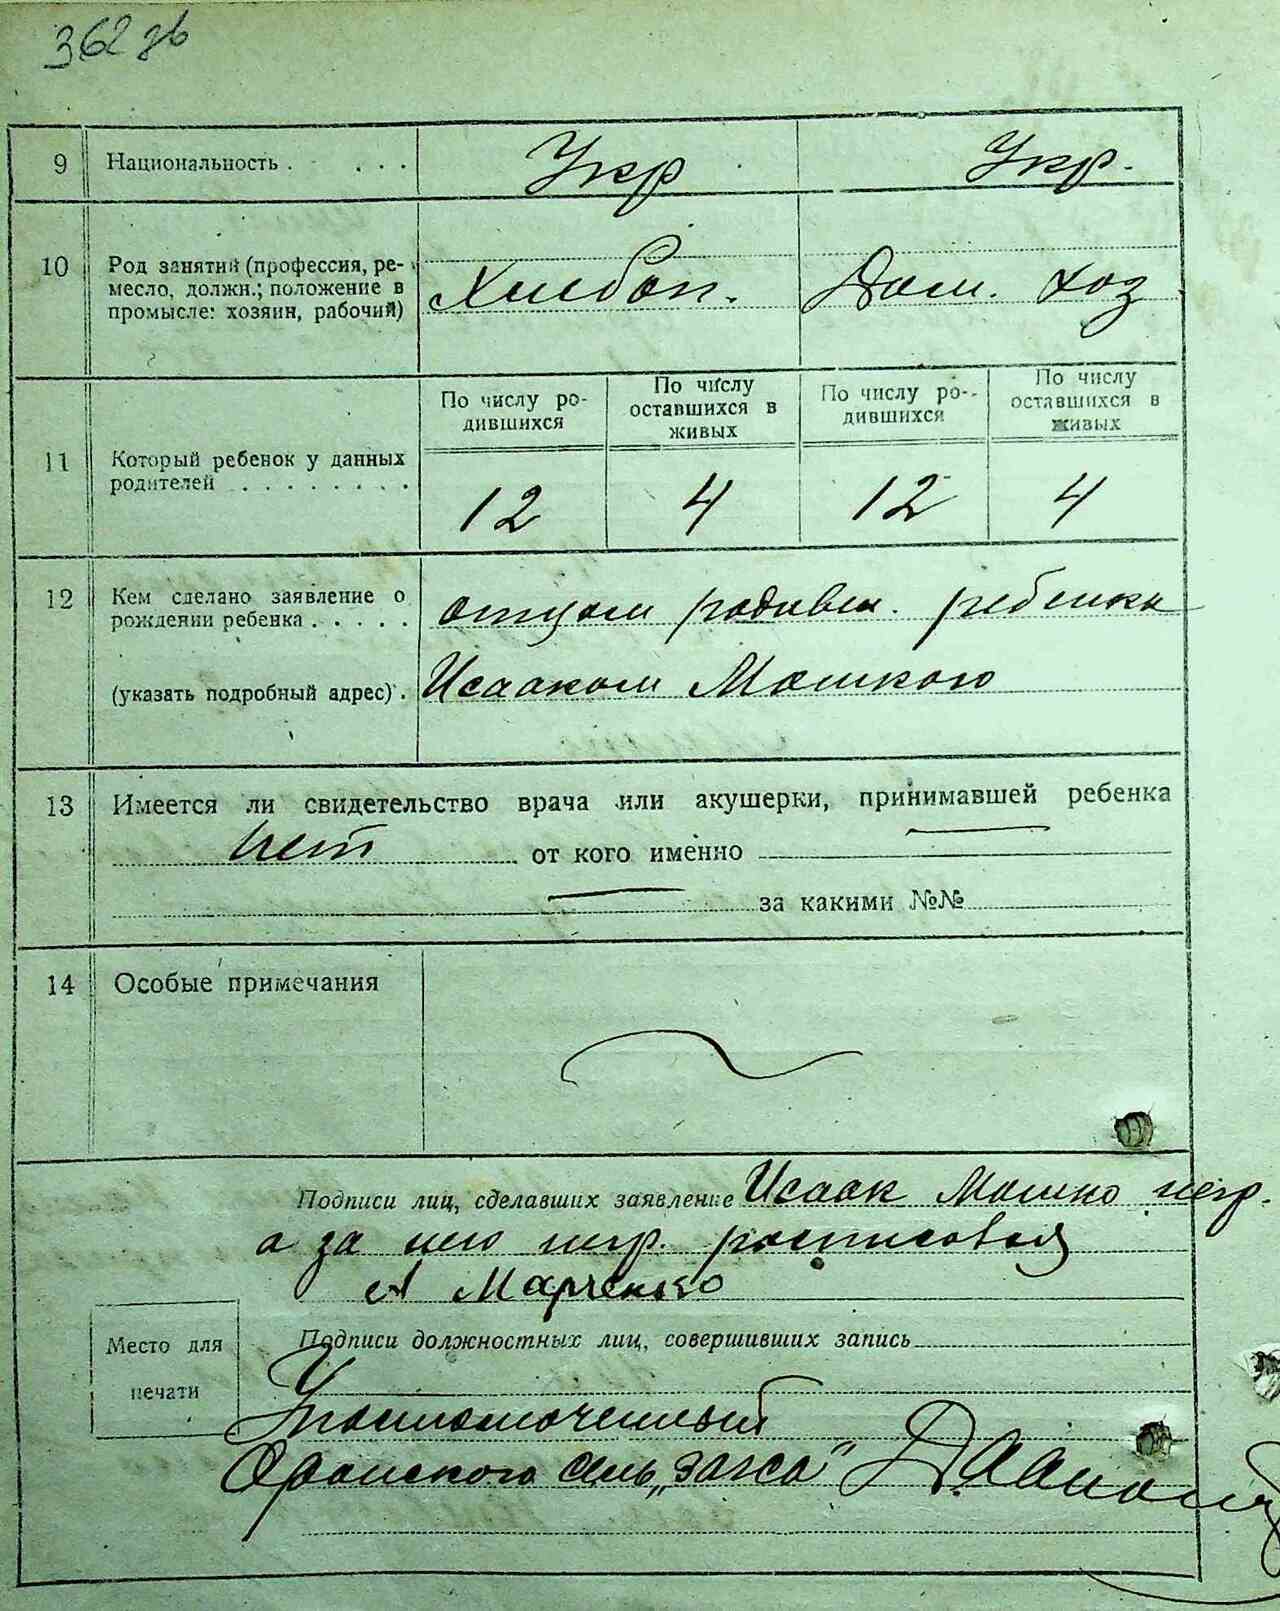 362 зв
9 Национальность . . . . Укр Укр.
10 Род занятий (профессия, ре-
месло, должн.; положение в
промысле: хозяин, рабочий) Хлебоп. Дом. хоз
По числу ро-
дившихся
По числу
оставшихся в
живых
По числу ро-
дившихся
По числу
оставшихся в
живых
11 Который ребенок у данных
родителей . . . . . . . . 12 4 12 4
12 Кем сделано заявление о
рождении ребенка . . . . . отцом родивш. ребенка
(указать подробный адрес) . Исааком Мошкою
13 Имеется ли свидетельство врача или акушерки, принимавшей ребенка
нет от кого именно —
— за какими №№
14 Особые примечания
Подписи лиц, сделавших заявление Исаак Мошко негр.
а за него негр. росписовался
А Марченко
Подписи должностных лиц, совершивших запись
Место для
печати
Уполномоченный
сель „загса“